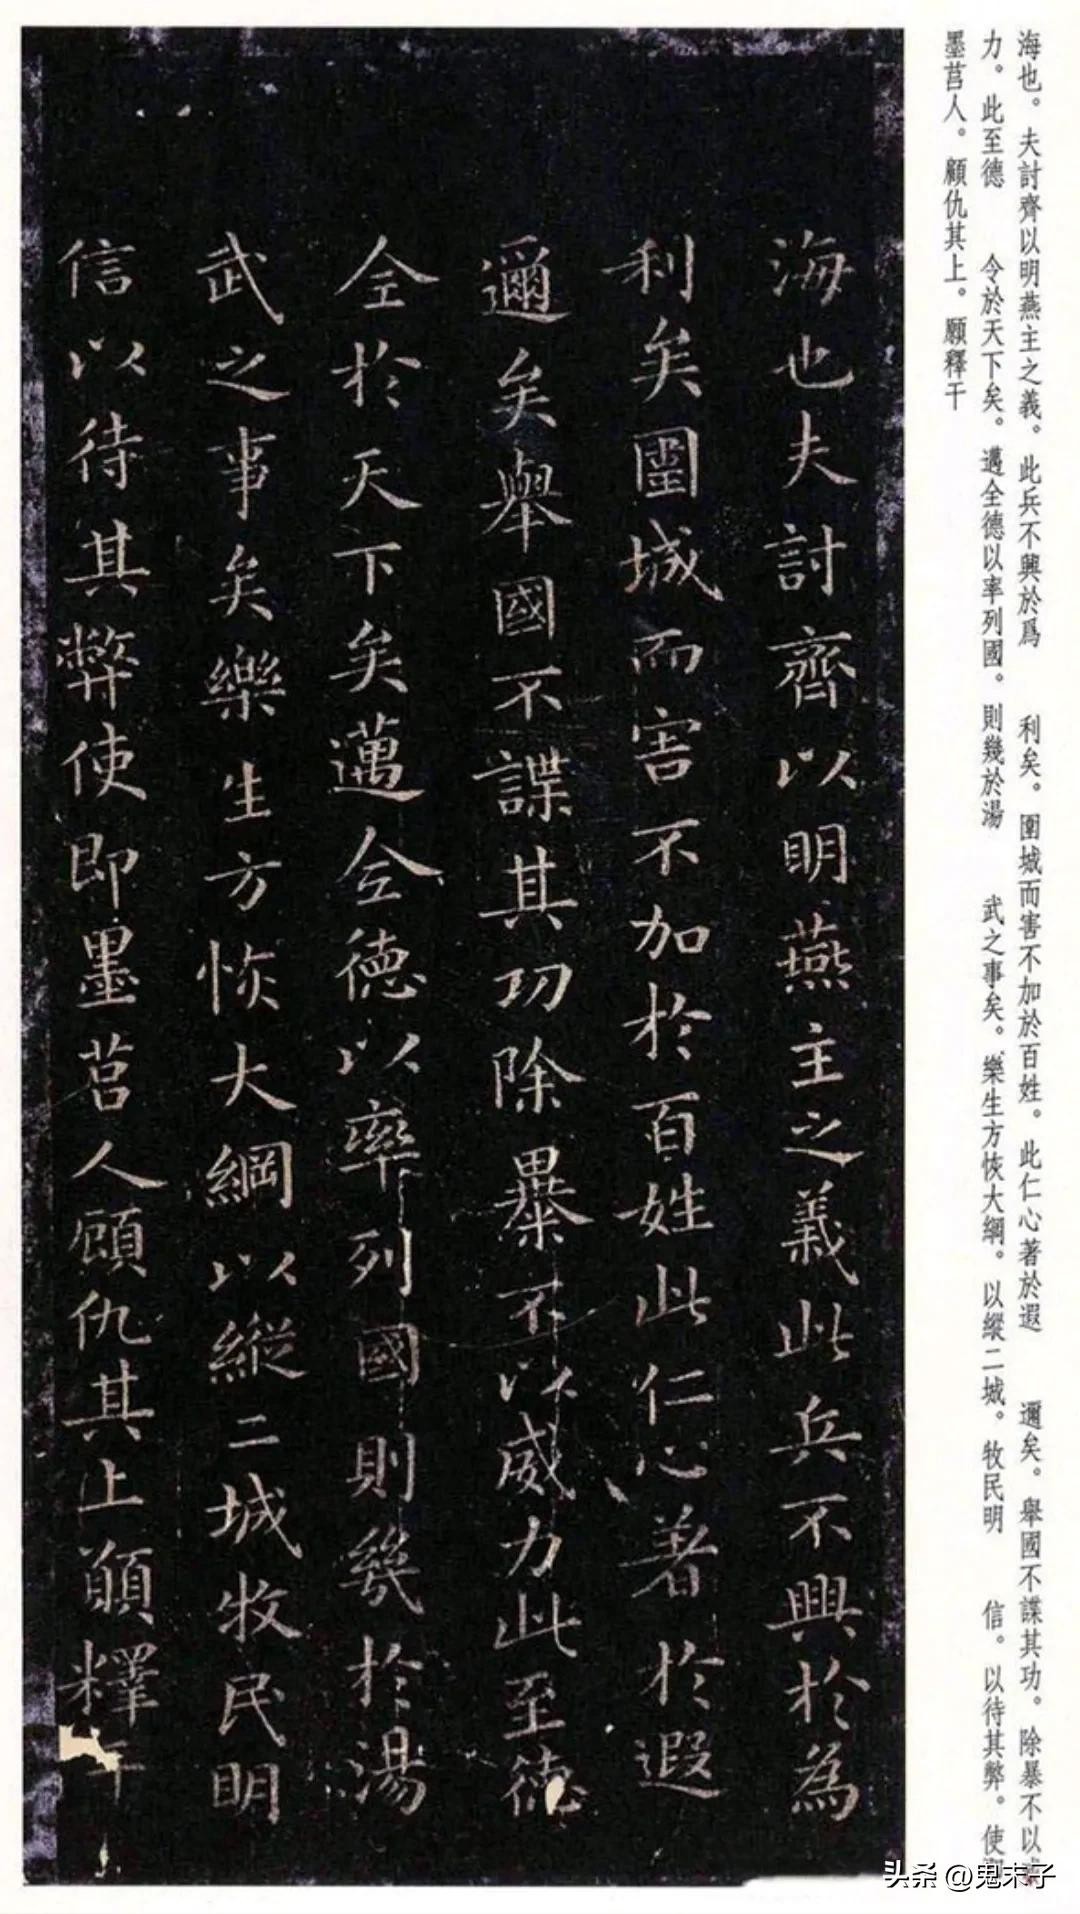 海也。夫討齊以明燕主之義。此兵不興於爲　利矣。圍城而害不加於百姓。此仁心著於遐　邇矣。舉國不諜其功。除暴不以
力。此至德　令於天下矣。邁全德以率列國。則幾於湯　武之事矣。樂生方恢大綱。以縱二城。牧民明　信。以待其弊。使
墨莒人。顧仇其上。願釋干
海也夫討齊以明燕主之義此兵不興於為
利矣圍城而害不加於百姓此仁心著於遐
邇矣舉國不諜其功除暴不以威力此至德
全於天下矣邁全德以率列國則幾於湯
武之事矣樂生方恢大綱以縱二城牧民明
信以待其弊使即墨莒人顧仇其上願釋干
头条 @鬼末子